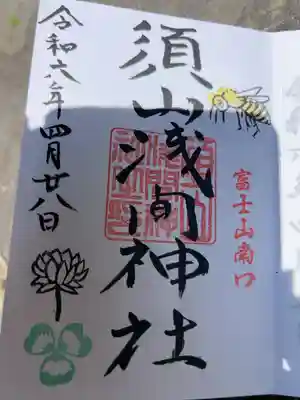 富士山南口
須山浅间神社
令和六年四月廿八日